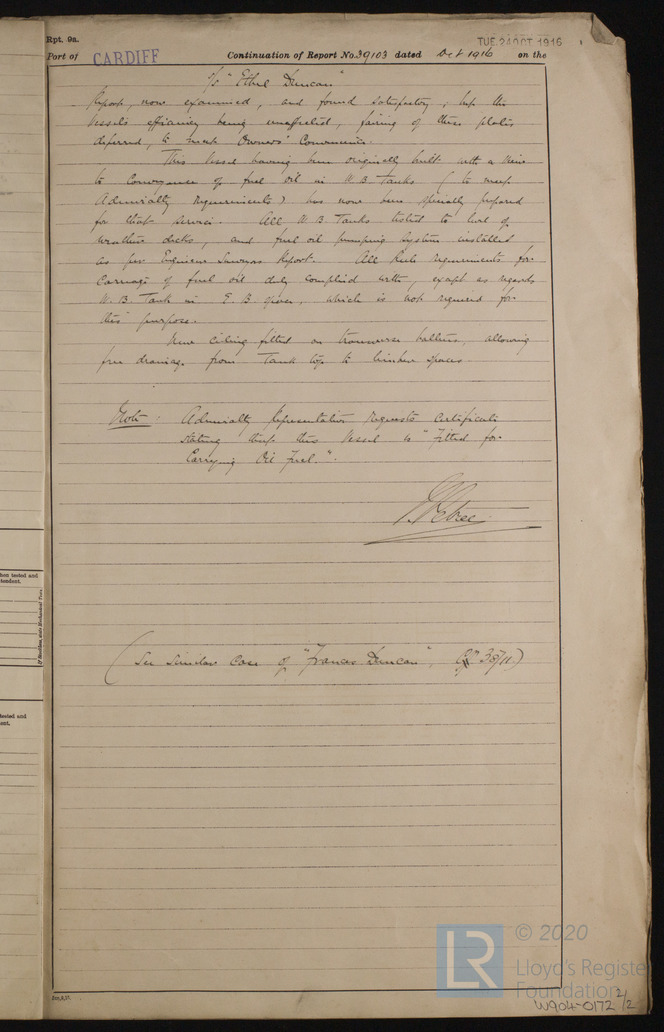 Rpt. 9a.
TUE. 24 OCT 1916
Port of CARDIFF Continuation of Report No. 39103 dated Oct 1916 on the
S/S "Ethel Duncan"
Report, now examined, and found satisfactory; but the
Vessel's efficiency being unaffected, fairing of these plates
deferred, to meet Owners' Convenience.
This Vessel having been originally built with a View
to Conveyance of fuel oil in W.B. Tanks (to meet
Admiralty Requirements) has now been specially prepared
for that service. All W.B. Tanks tested to head of
weather decks, and fuel oil pumping system installed
as per Engineer Surveyors Report. All Rule requirements for
Carriage of fuel oil duly complied with, except as regards
W.B. Tank in E.B. space, which is not required for
this purpose.
New ceiling fitted on transverse battens, allowing
free drainage from Tank top to limber spaces.
Note: Admiralty Representative requests Certificate
stating that this Vessel is "Fitted for
Carrying Oil Fuel."
(See Similar Case of "Frances Duncan", 36/11)
hen tested and
tendent.
tested and
ent.
© 2020
LR
Lloyd's Register
Foundation
W904-0172 2/2